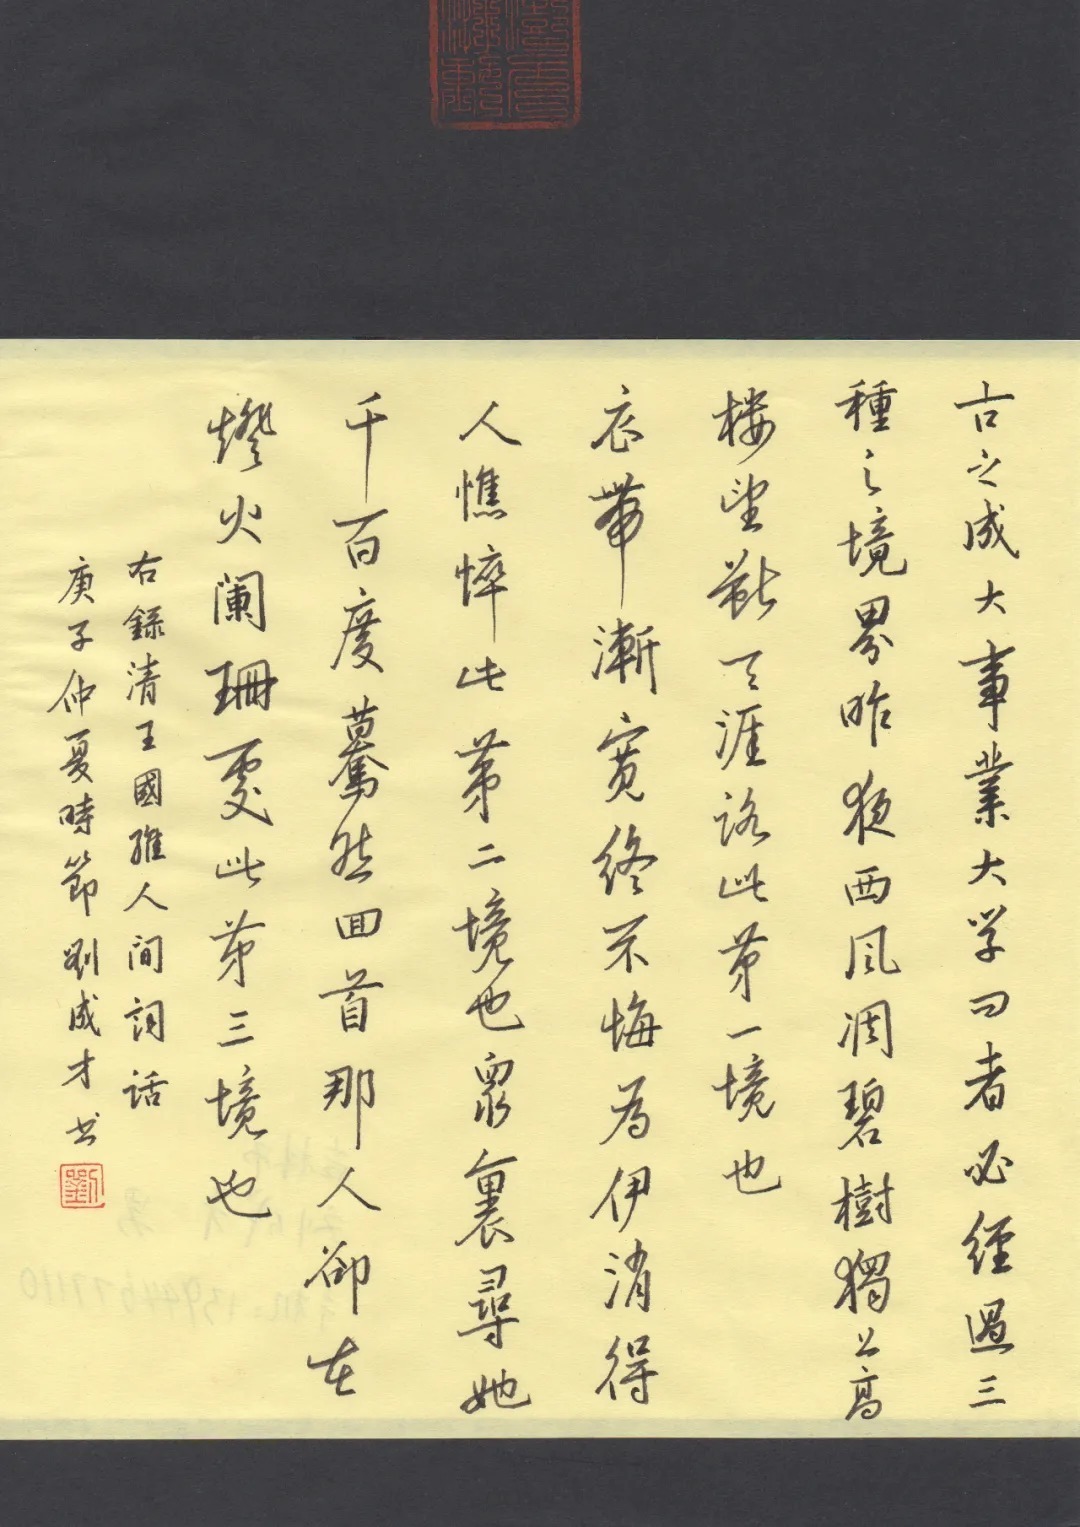 古之成大事業大学曰者必經過三
種之境界昨夜西风凋碧樹獨上高
楼望斷天涯路此第一境也
衣帶漸宽终不悔為伊消得
人憔悴此第二境也眾裏尋她
千百度驀然回首那人卻在
燈火阑珊處此第三境也
右錄清王國維人间詞話
庚子仲夏時節劉成才书
劉